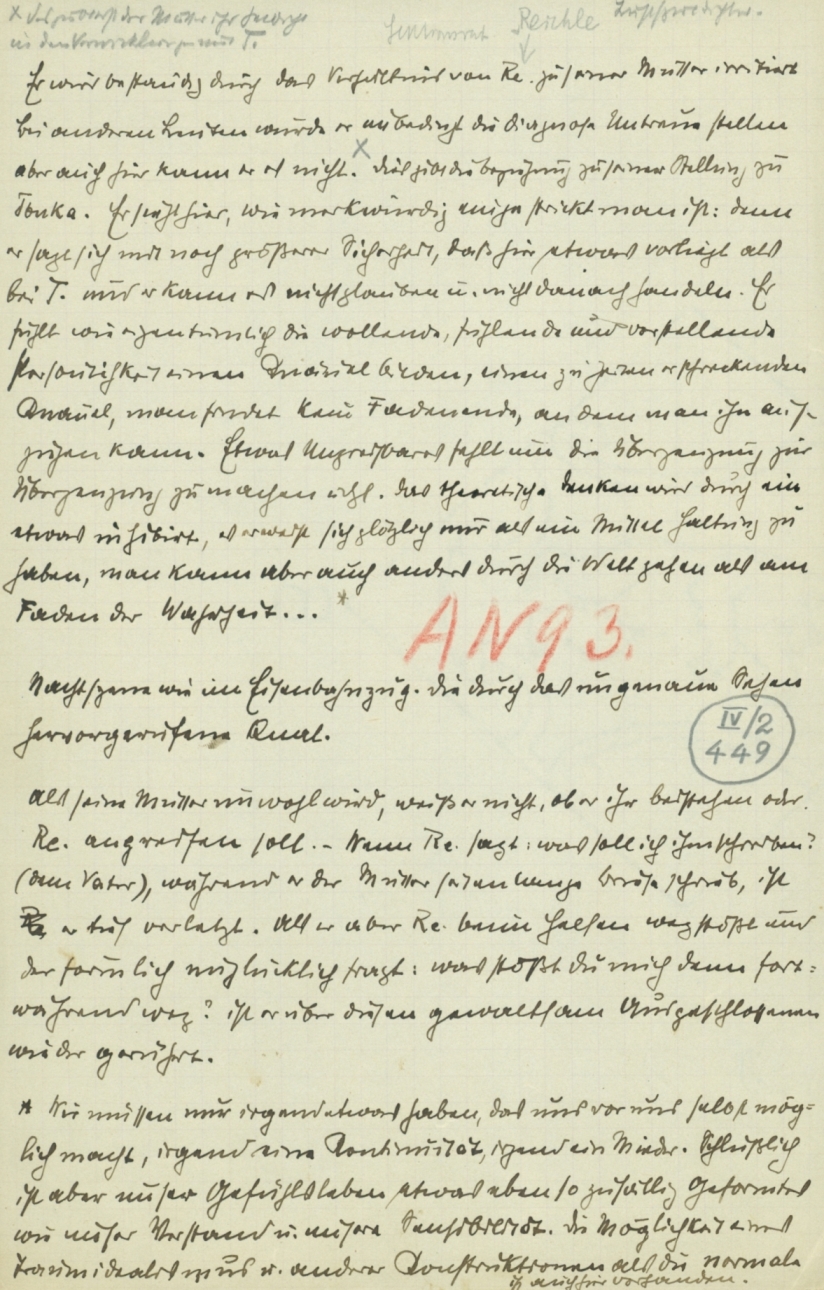 x
in den Vorwirklichungen mit T.
Reichle
Er wird beständig durch das Verhältnis von Re. zu seiner Mutter irritiert
bei anderen Leuten würde er unbedingt die Diagnose Untreue stellen
aber auch hier kann er es nicht. x Dies gibt die Beziehung zu seiner Stellung zu
Tonka. Er sieht hier, wie merkwürdig eingestrickt man ist: denn
er sagt sich mit noch größerer Sicherheit, daß hier etwas vorliegt als
bei T. und er kann es nicht glauben u. nicht danach handeln. Er
fühlt wie eigentümlich die wollende, fühlende und vorstellende
Persönlichkeit einen Knäuel bilden, einen zu Zeiten erschreckenden
Knäuel, man findet kein Fadenende, an dem man ihn auf-
ziehen kann. Etwas Ungreifbares fehlt um die Überzeugung zur
Überzeugung zu machen. Das theoretische Denken wird durch ein
etwas inhibirt, es erweist sich plötzlich nur als ein Mittel Haltung zu
haben, man kann aber auch anders durch die Welt gehen als am
Faden der Wahrheit... *
AN 93.
Nachtszene wie im Eisenbahnzug. Die durch das ungenaue Sehen
hervorgerufene Qual.
IV/2
449
Als seine Mutter unwohl wird, weiß er nicht, ob er ihr beistehen oder
Re. angreifen soll. – Wenn Re. sagt: was soll ich ihm schreiben?
(dem Vater), während er der Mutter seitenlange Briefe schrieb, ist
er tief verletzt. Als er aber Re. beim Helfen wegstößt und
der förmlich unglücklich fragt: was stößt du mich denn fort=
während weg? ist er über diesen gewaltsam Ausgeschlossenen
wieder gerührt.
* Wir müssen nur irgendetwas haben, das uns vor uns selbst mög=
lich macht, irgend eine Kontinuität, irgend ein Mieder. Schließlich
ist aber unser Gefühlsleben etwas ebenso zufällig Geformtes
wie unser Verstand u. unsere Sensibilität. Die Möglichkeit eines
Traumidealismus u. anderer Konstruktionen als die normale
ist auch hier vorhanden.